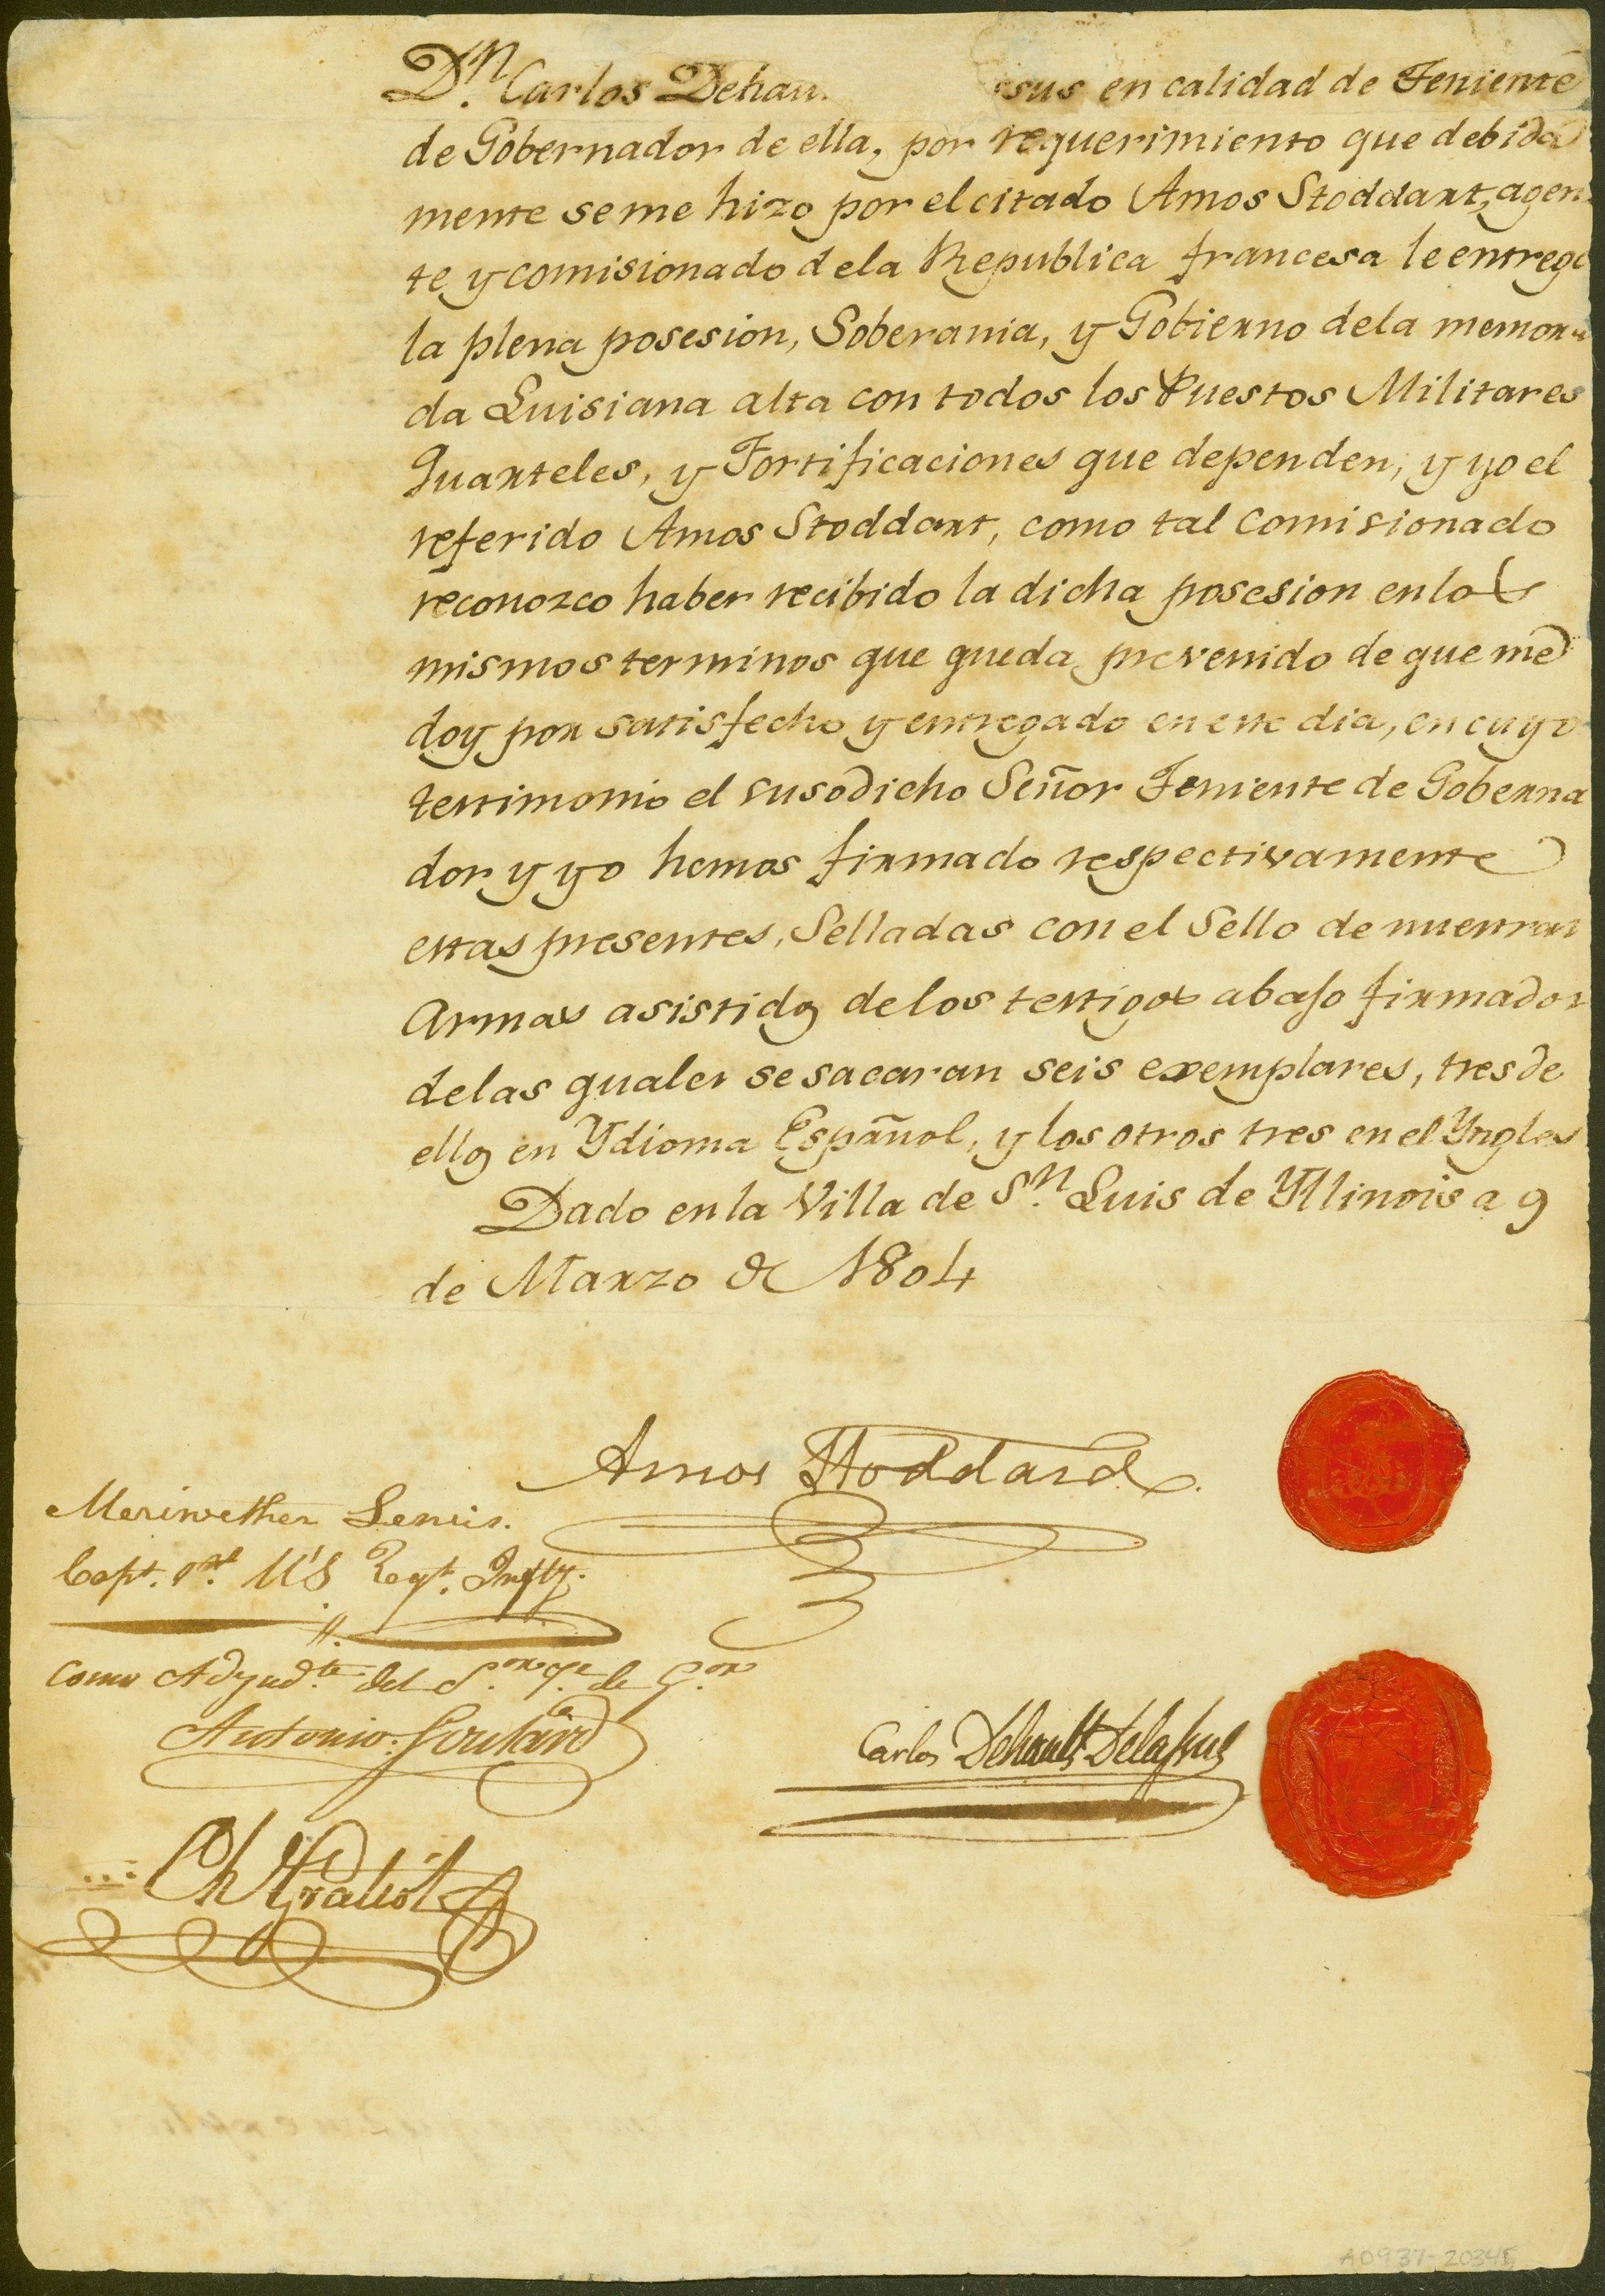 Dn. Carlos Dehau sus en calidad de Teniente
de Gobernador de ella, por requerimiento que debida
mente se me hizo por el citado Amos Stoddart, agen
te y comisionado dela Republica francesa le entrego
la plena posesion, Soberania, y Gobierno dela memora
da Luisiana alta con todos los Puestos Militares
Quarteles, y Fortificaciones que dependen, y yo el
referido Amos Stoddart, como tal Comisionado
reconozco haber recibido la dicha posesion en los
mismos terminos que queda prevenido de que me
doy por satisfecho y entregado en este dia, en cuyo
testimonio el susodicho Señor Teniente de Goberna
dor y yo hemos firmado respectivamente
estas presentes, Selladas con el Sello de nuestras
Armas asistidos de los testigos abajo firmados
delas quales se sacaran seis exemplares, tres de
ellos en Ydioma Español, y los otros tres en el Yngles
Dado en la Villa de Sn. Luis de Yllinois a 9
de Marzo de 1804
Amos Stoddard
Meriwether Lewis.
Capt. 1st. U'S. Regt. Infty.
Como Adyudte. del Sor. Te. de Gor.
Antonio Soulard
Carlos Dehault Delassus
Ch Gratiot
A0937-20345